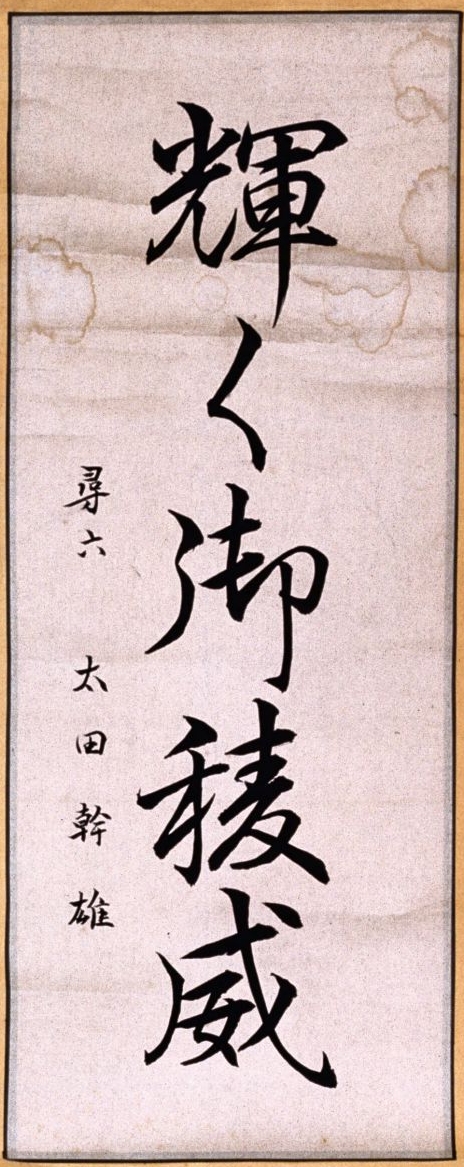 輝く御稜威
尋六 太田幹雄